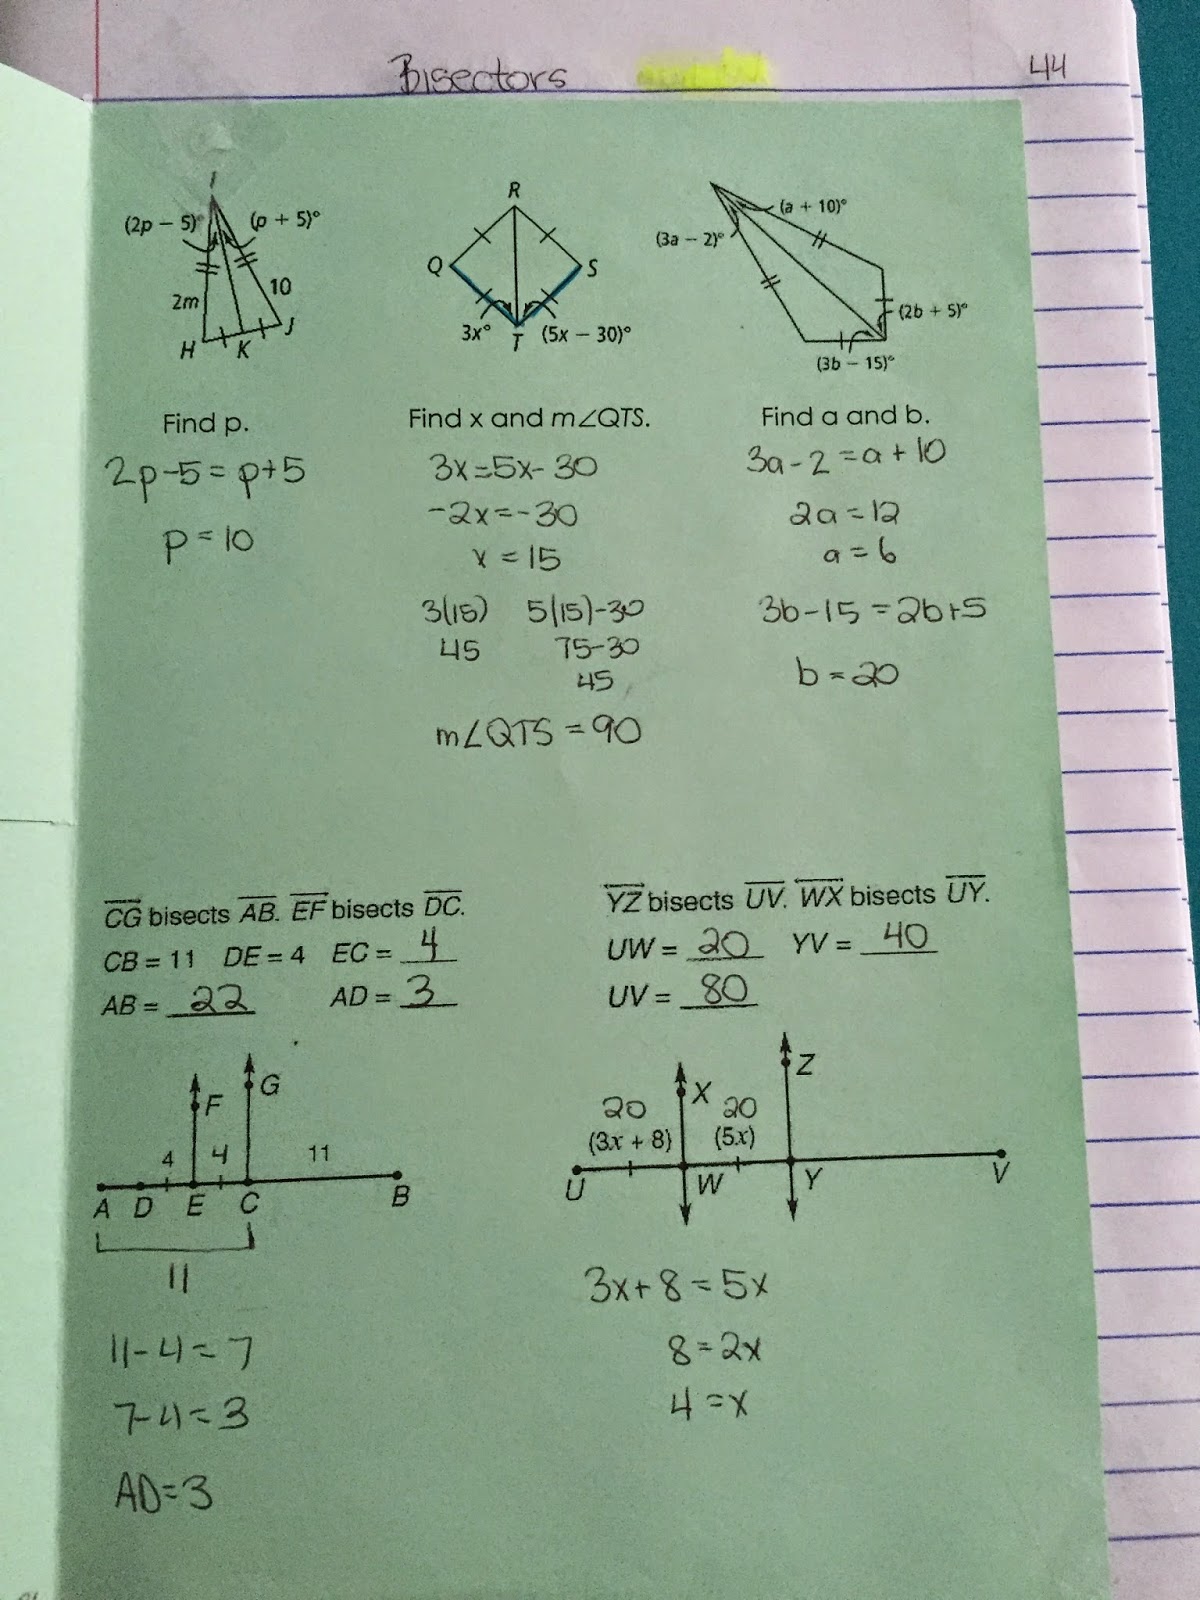 Bisectors
44
I
(2p − 5)° (p + 5)°
2m 10
H K J
R
Q S
3x° T (5x − 30)°
(a + 10)°
(3a − 2)°
(2b + 5)°
(3b − 15)°
Find p.
2p-5=p+5
p=10
Find x and m∠QTS.
3x=5x-30
-2x=-30
x=15
3(15) 5(15)-30
45 75-30
45
m∠QTS=90
Find a and b.
3a-2=a+10
2a=12
a=6
3b-15=2b+5
b=20
CG bisects AB. EF bisects DC.
CB = 11 DE = 4 EC = 4
AB = 22 AD = 3
G
F
4 4 11
A D E C B
11
11-4=7
7-4=3
AD=3
YZ bisects UV. WX bisects UY.
UW = 20 YV = 40
UV = 80
Z
X
20 20
(3x + 8) (5x)
U W Y V
3x+8=5x
8=2x
4=x